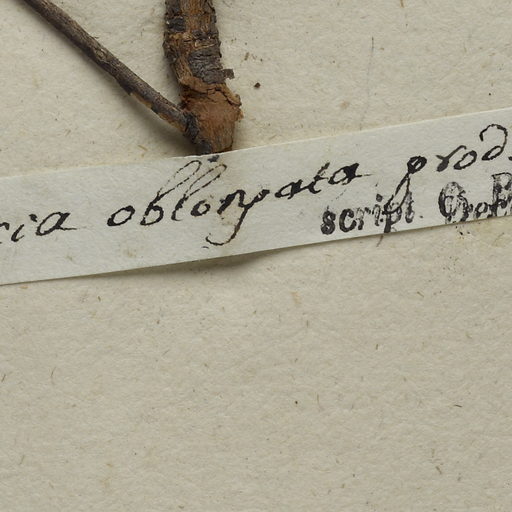 cia oblongata prod.
script.